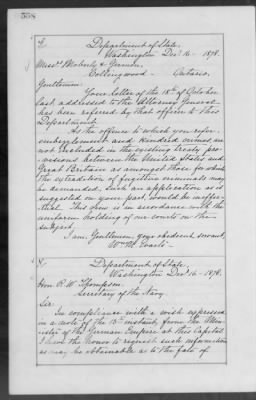 558
Department of State,
Washington Dec. 16 - 1878.
Messrs Moberly &
Collingwood - Ontario.
Gentlemen:
Your letter of the 18th of October
last addressed to the Attorney General
has been referred by that officer to this
Department
As the offences to which you refer,
embezzlement and kindred crimes are
not included in the existing treaty pro-
visions between the United States and
Great Britain as amongst those for which
the extradition of fugitive criminals may
be demanded, such an application as is
suggested on your part, would be ineffec-
tual. This view is in accordance with the
uniform holding of our courts on the
subject.
I am, Gentlemen, your obedient servant,
Wm M. Evarts -
Department of State,
Washington Dec. 16 - 1878.
Hon R. W. Thompson,
Secretary of the Navy.
Sir:
In compliance with a wish expressed
in a note of the 13th instant, from the Min-
ister of the German Empire at this Capital
I have the honor to request such information
as may be obtainable as to the fate of